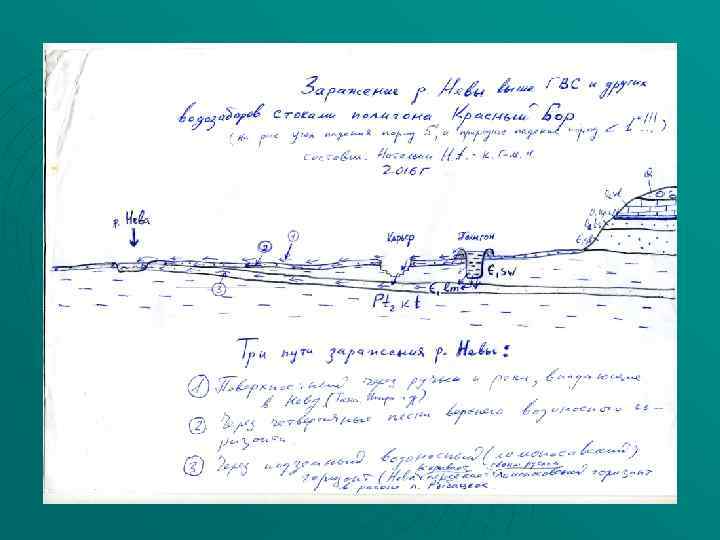 Заражение р. Невы выше ГВС и других
водозаборов стоками полигона Красный Бор
(на рис угол падения пород 5°, а природное падение пород < 1°!!!)
Составил: Натальин Н.А. - к. г-м. н
2016 г
Q
р. Нева
1
2
Карьер
Полигон
Є₁ sw
3
Є₁ lm
Pt₂ kt
Три пути заражения р. Невы:
1 Поверхностный через ручьи и реки, впадающие
в Неву (Тосна, Ижора и др)
2 Через четвертичные пески верхнего водоносного го-
ризонта
3 Через подземный водоносный (ломоносовский)
горизонт
в районе п. Рыбацкое